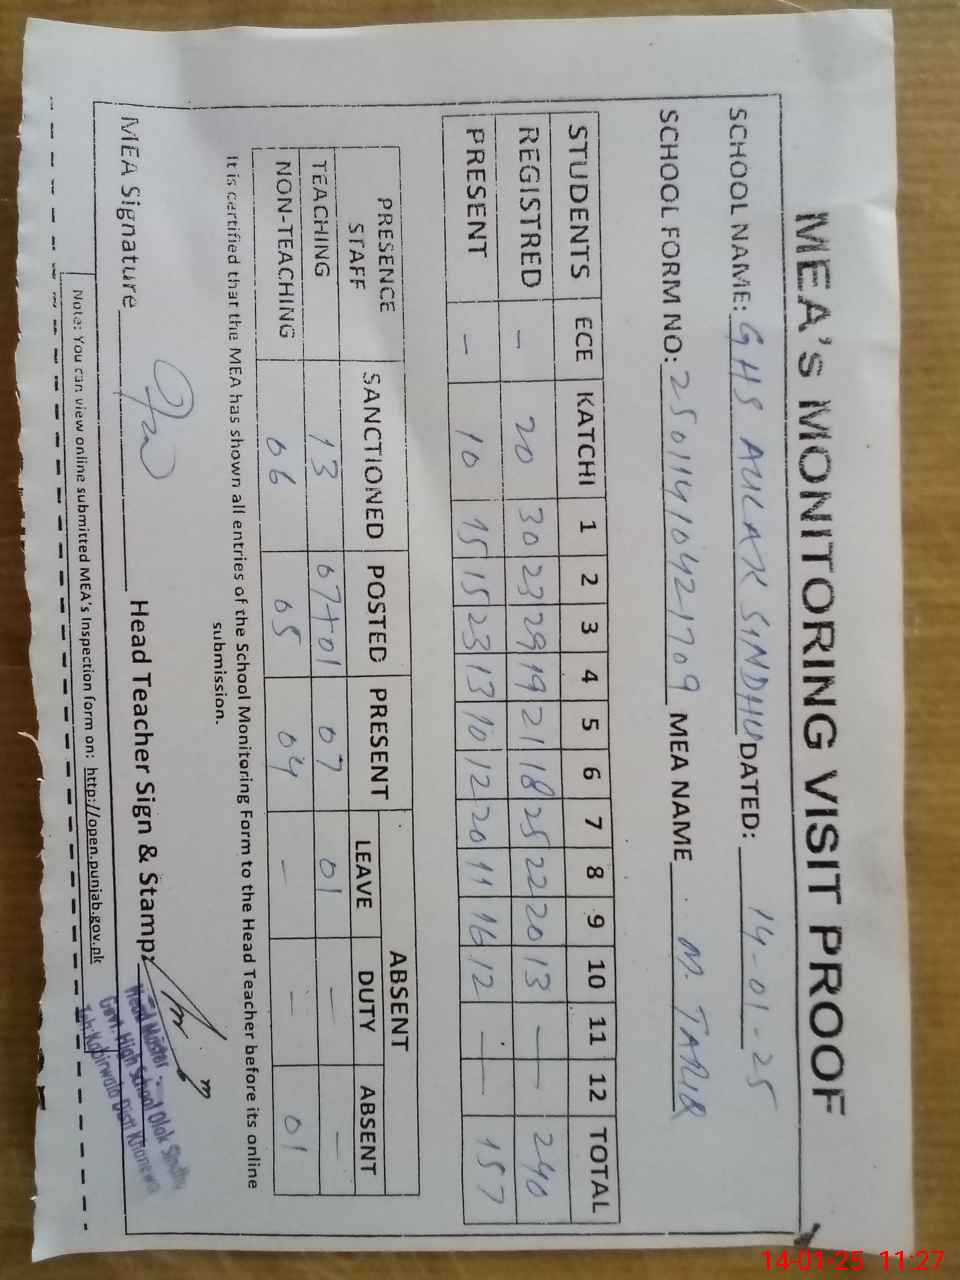 MEA's MONITORING VISIT PROOF
SCHOOL NAME: GHS AULAK SINDHU DATED: 14-01-25
SCHOOL FORM NO: 25011410421709 MEA NAME M. TARIQ
STUDENTS ECE KATCHI 1 2 3 4 5 6 7 8 9 10 11 12 TOTAL
REGISTRED - 20 30 23 29 19 21 18 25 22 20 13 - - 240
PRESENT - 10 15 15 23 13 10 12 20 11 16 12 - - 157
PRESENCE STAFF SANCTIONED POSTED PRESENT ABSENT
LEAVE DUTY ABSENT
TEACHING 13 07+01 07 01 - -
NON-TEACHING 06 05 04 - - 01
It is certified that the MEA has shown all entries of the School Monitoring Form to the Head Teacher before its online
submission.
MEA Signature Head Teacher Sign & Stamp:
Head Master
Govt. High School Olak Sindhu
Teh: Kabirwala Distt Khanewal
Note: You can view online submitted MEA's Inspection form on: http://open.punjab.gov.pk
14-01-25 11:27